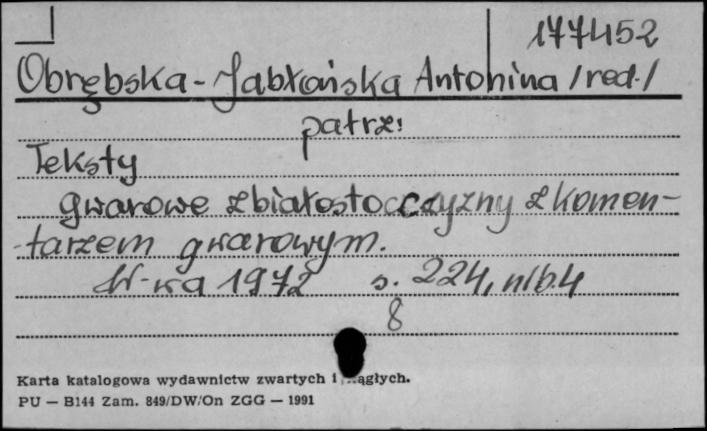 177452
Obrębska-Jabłońska Antonina /red./
patrz:
Teksty
gwarowe z białostocczyzny z komen-
-tarzem gwarowym.
W-wa 1972 s. 224, nlb. 4
8
Karta katalogowa wydawnictw zwartych i ciągłych.
PU — B144 Zam. 849/DW/On ZGG — 1991